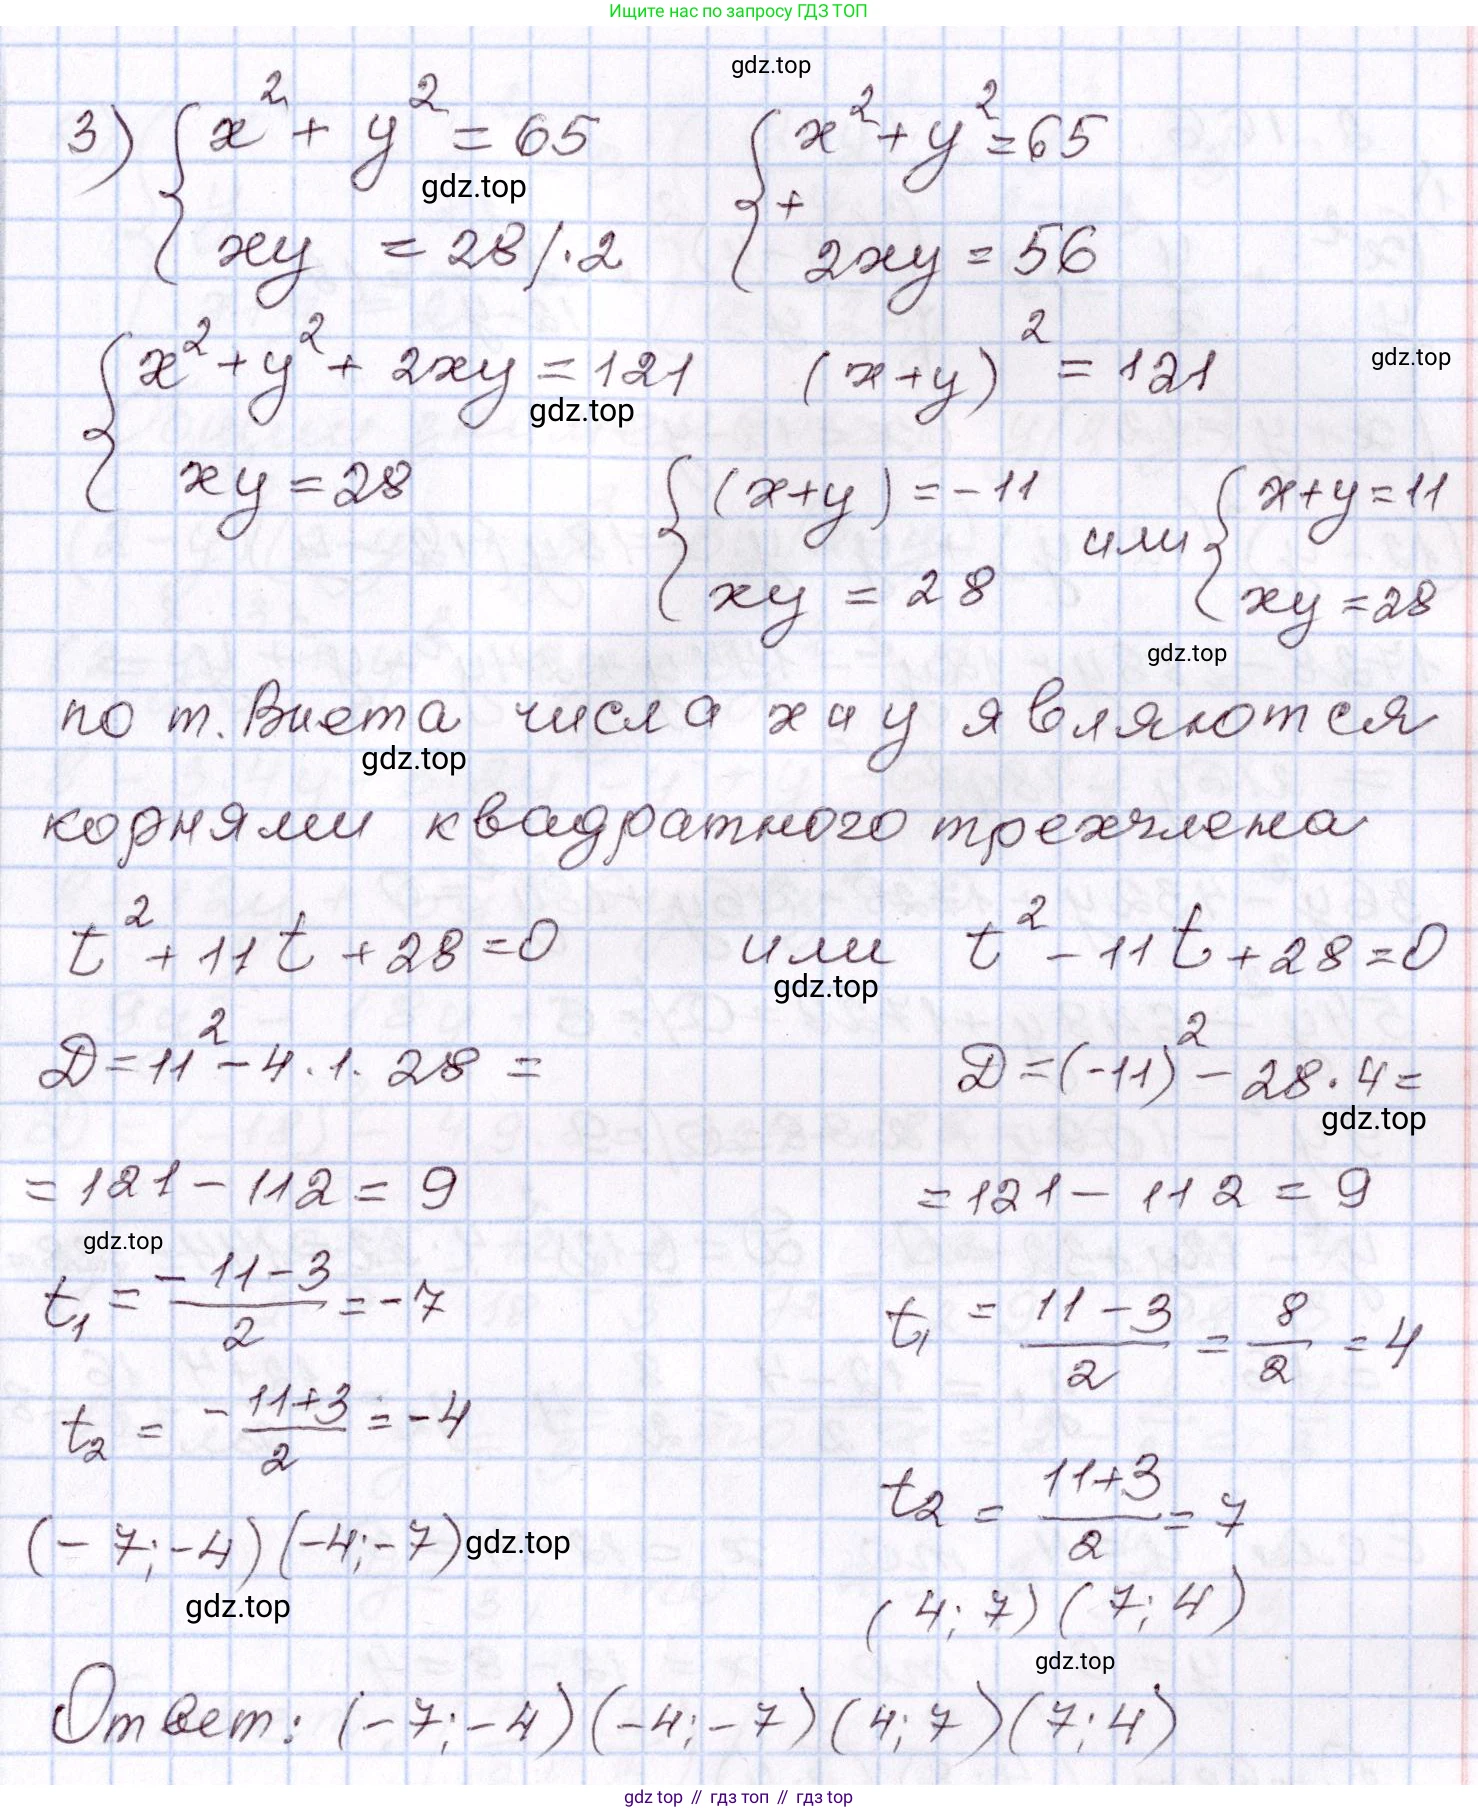 Ищите нас по запросу ГДЗ ТОП
gdz.top
3) { x² + y² = 65 { x² + y² = 65
gdz.top
+
xy = 28 / · 2 2xy = 56
{ x² + y² + 2xy = 121 (x+y)² = 121
gdz.top
gdz.top
xy = 28 { (x+y) = -11 или { x+y = 11
xy = 28 xy = 28
gdz.top
по т. Виета числа x и y являются
gdz.top
корнями квадратного трехчлена
t² + 11t + 28 = 0 или t² - 11t + 28 = 0
gdz.top
D = 11² - 4 · 1 · 28 = D = (-11)² - 28 · 4 =
gdz.top
= 121 - 112 = 9 = 121 - 112 = 9
gdz.top
t₁ = (-11-3)/2 = -7 t₁ = (11-3)/2 = 8/2 = 4
t₂ = -(11+3)/2 = -4 t₂ = (11+3)/2 = 7
(-7; -4) (-4; -7) gdz.top
gdz.top
(4; 7) (7; 4)
gdz.top
Ответ: (-7; -4) (-4; -7) (4; 7) (7; 4)
gdz.top // гдз топ // gdz top